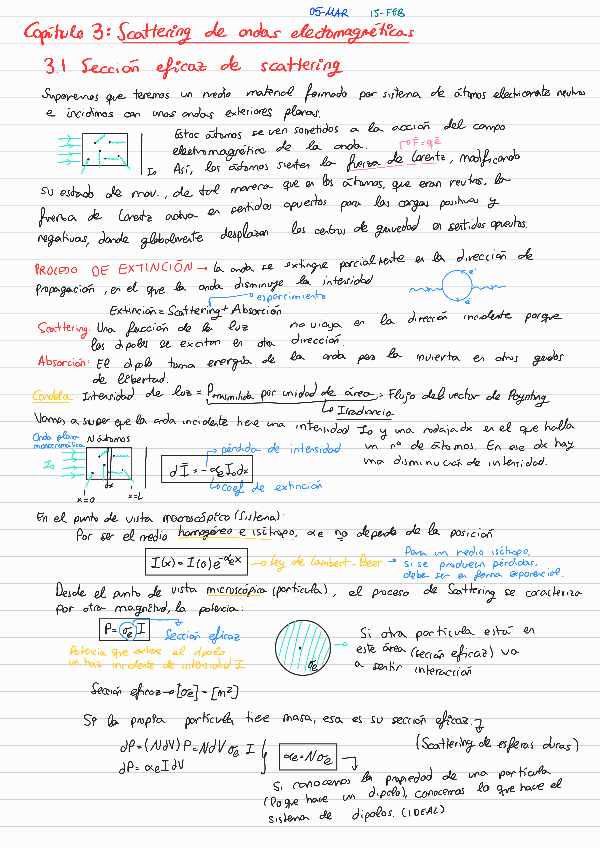 05-MAR 15-FEB
Capítulo 3: Scattering de ondas electomagnéticas
3.1 Sección eficaz de scattering
Suponemos que tenemos un medio material formado por sistema de átomos electricamente neutros
e incidimos con unas ondas exteriores planas.
Estos átomos se ven sometidos a la acción del campo
electromagnético de la onda.
F=qE
I₀
Así, los átomos sienten la fuerza de Lorentz, modificando
su estado de mov., de tal manera que en los átomos, que eran neutros, la
fuerza de Lorentz actua en sentidos opuestos para las cargas positivas y
negativas, donde globalmente desplazan los centros de gravedad en sentidos opuestos.
PROCESO DE EXTINCIÓN → la onda se extingue parcialmente en la dirección de
propagación, en el que la onda disminuye la intensidad
esparcimiento
Extinción = Scattering + Absorción
Scattering: Una fracción de la luz no viaja en la dirección incidente porque
los dipolos se excitan en otra dirección.
Absorción: El dipolo toma energía de la onda para la invierta en otros grados
de libertad.
Candela: Intensidad de luz = Ptransmitida por unidad de área = Flujo del vector de Poynting
Irradiancia
Vamos a super que la onda incidente tiene una intensidad I₀ y una rodaja dx en el que halla
un nº de átomos. En ese dx hay
una disminución de intensidad.
Onda plana
monocromática
N átomos
I₀
dx
x=0 x=L
pérdida de intensidad
dI = -αe I₀ dx
coef de extinción
En el punto de vista macroscópico (Sistema):
Por ser el medio homogéneo e isótropo, αe no depende de la posición
I(x) = I(0)e^-αe x → Ley de Lambert-Beer → Para un medio isótropo,
si se producen pérdidas,
deber ser en forma exponencial.
Desde el punto de vista microscópico (partícula), el proceso de Scattering se caracteriza
por otra magnitud, la potencia:
P = σe I
Sección eficaz
Potencia que extrae el dipolo
un haz incidente de intensidad I
σe
Si otra partícula está en
este área (sección eficaz) va
a sentir interacción
Sección eficaz → [σe] = [m²]
Si la propia partícula tiene masa, esa es su sección eficaz.
(Scattering de esferas duras)
dP = (NdV) P = NdV σe I
dP = αe I dV
αe = Nσe
Si conocemos la propiedad de una partícula
(lo que hace un dipolo), conocemos lo que hace el
sistema de dipolos. (IDEAL)